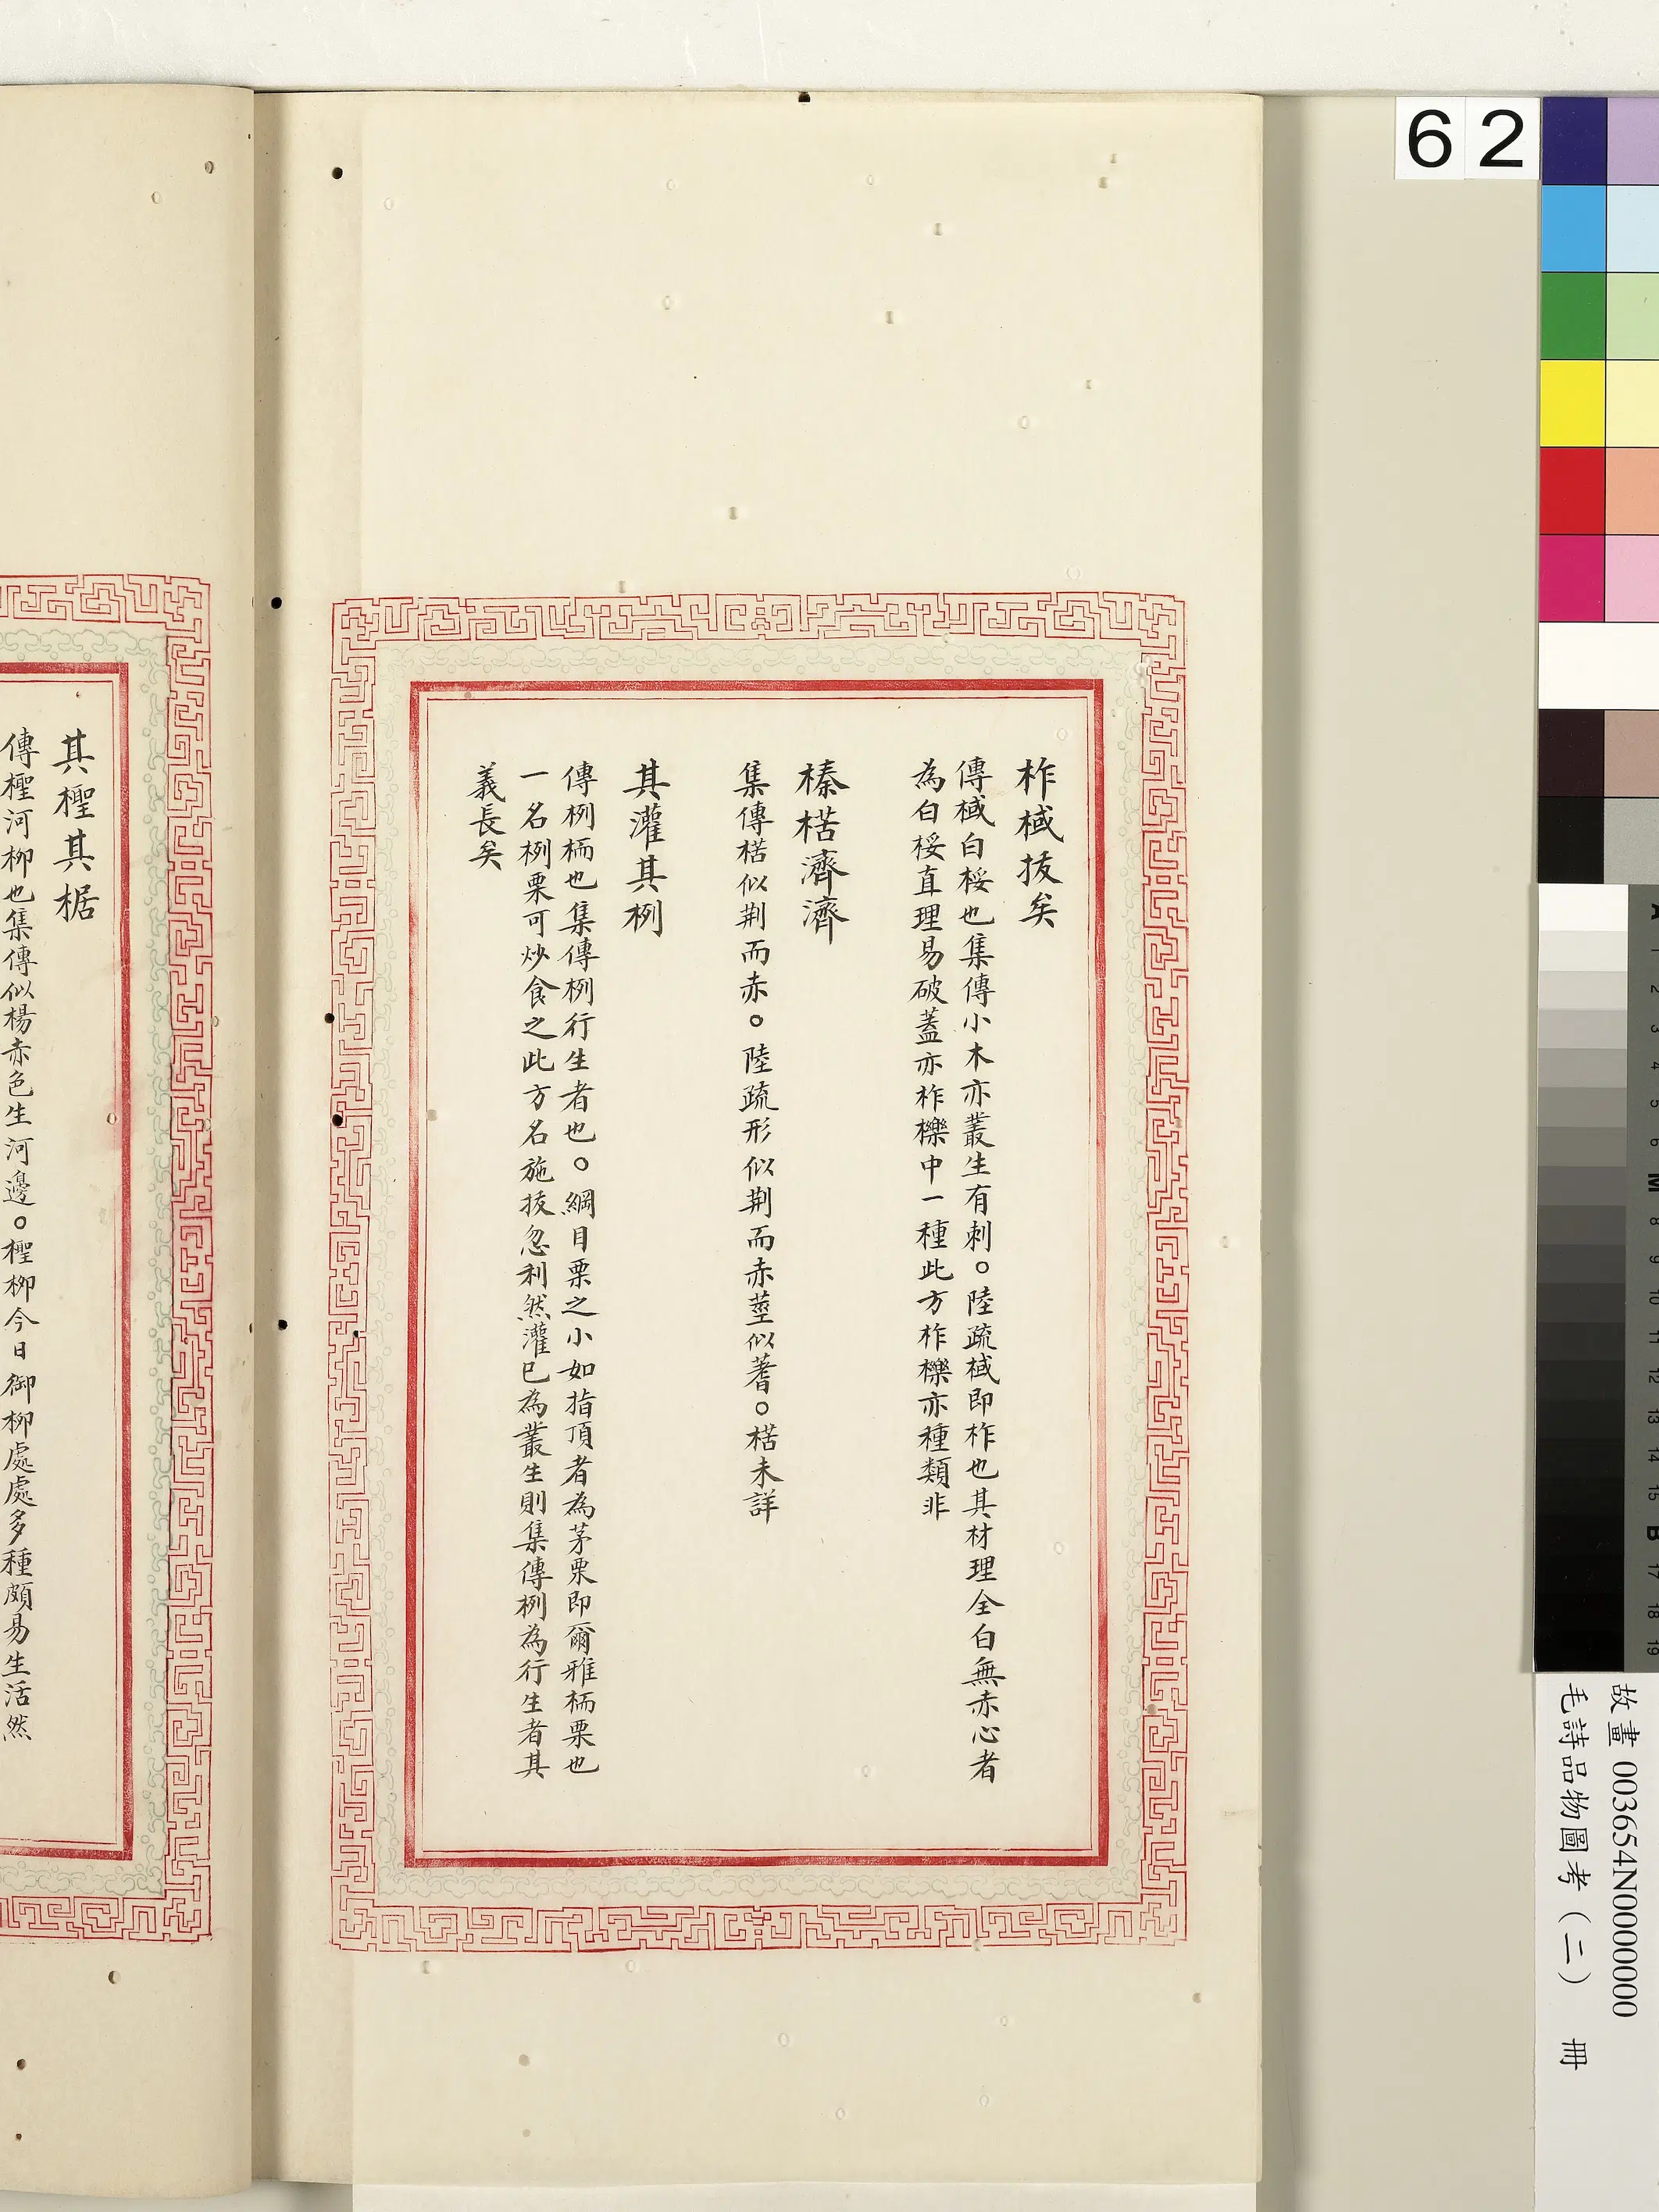 柞棫拔矣
傳棫白桵也集傳小木亦叢生有刺○陸疏棫即柞也其材理全白無赤心者
為白桵直理易破蓋亦柞櫟中一種此方柞櫟亦種類非
榛楛濟濟
集傳楛似荆而赤○陸疏形似荆而赤莖似蓍○楛未詳
其灌其栵
傳栵栭也集傳栵行生者也○綱目栗之小如指頂者為茅栗即爾雅栭栗也
一名栵栗可炒食之此方名施拔忽利然灌已為叢生則集傳栵為行生者其
義長矣
其檉其椐
傳檉河柳也集傳似楊赤色生河邊○檉柳今日御柳處處多種頗易生活然
62
故畫 003654N000000000
毛詩品物圖考（二） 冊